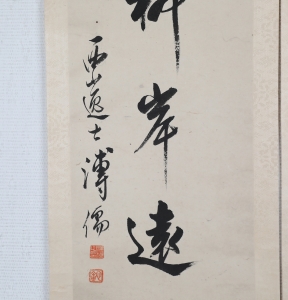 岸遠
西山逸士溥儒